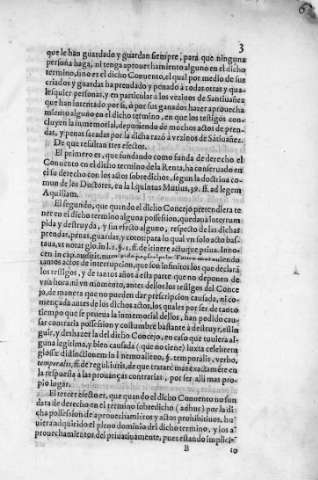 3
que le han guardado y guardan siempre, para que ninguna
persona haga, ni tenga aprouechamiento alguno en el dicho
termino, sino es el dicho Conuento, el qual por medio de sus
criados y guardas ha prendado y penado à todas otras y qua-
lesquier personas, y en particular a los vezinos de Santiuañez
que han intentado por si, ò por sus ganados hazer aprouecha-
miento alguno en el dicho termino, en que los testigos con-
cluyen la inmemorial, deponiendo de muchos actos de pren-
das, y penas sacadas por la dicha razò à vezinos de Sātiuañez.
De que resultan tres efectos.
El primero es, que fundando como funda de derecho el
Conuento en el dicho termino de la Renta, ha conseruado en
el su derecho con los actos sobredichos, segun la doctrina co-
mun de los Doctores, en la l. quintus Mutius, 39. ff. ad legem
Aquiliam.
El segundo, que quando el dicho Concejo pretendiera te-
ner en el dicho termino alguna possession, quedaua interrum-
pida y destruyda, y sin efecto alguno, respecto de las dichas
prendas, penas, guardas, y
tantos actos de interrupcion, que son infinitos los que declarā
los testigos, y de tantos años a esta parte que no deponen de
vna hora, ni vn momento, antes dellos los testigos del Conce
jo, de manera que no pueden dar prescripcion causada, ni co-
mençada antes de los dichos actos, los quales por ser de tanto
tiempo que se prueua la inmemorial dellos, han pedido cau-
sar contraria possession y costumbre bastante à destruyr, es
guir, y deshazer la del dicho Concejo, en caso que tuuiera al-
guna legitima, y bien causada (que no tiene)
temporalis, ff. de regul. iuris, de que trataré mas exactamēte en
la respuesta à las prouanças contrarias, por ser alli mas pro-
pio lugar.
El tercer efecto es, que quando el dicho Conuento no fun
dara de derecho en el termino sobredicho (adhuc) por la di-
cha possession de aprouechamiētos y actos prohibitiuos, hu-
uiera adquirido el pleno dominio del dicho termino, y los a-
prouechamientos del priuatiuamente, pues estando
B